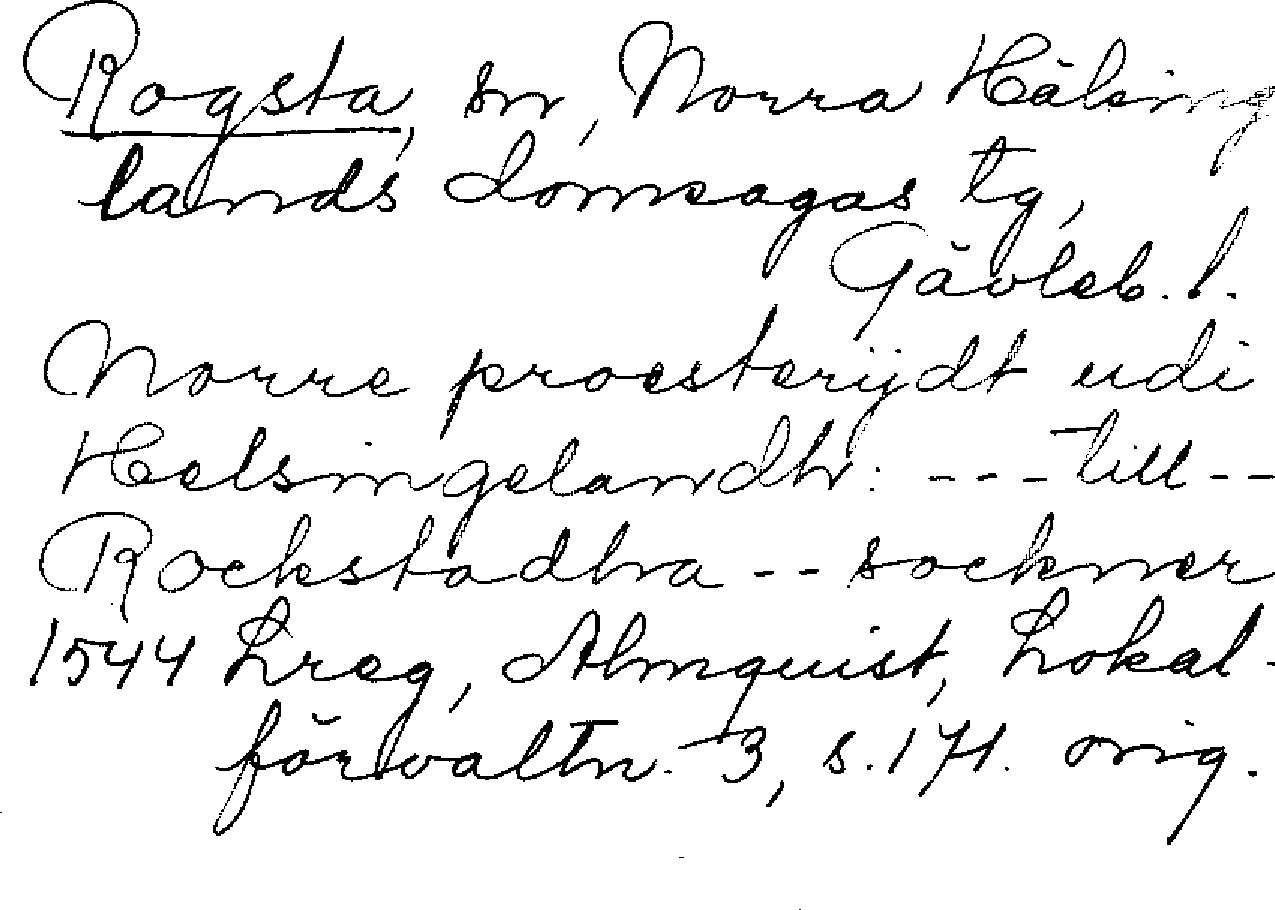 Rogsta, sn, Norra Hälsing
lands domsagas tg,
Gävleb. l.
Norre proesterijdt udi
Helsingelandh: --- till --
Rockstadhra -- sockner
1544 Lreg, Almquist, Lokal-
förvaltn. 3, s. 171. orig.